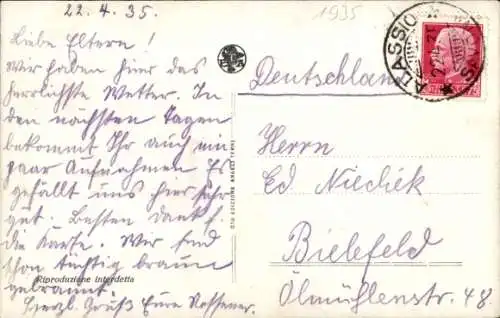 22.4.35.
1935
Liebe Eltern!
Wir haben hier das
herrlichste Wetter. In
den nächsten Tagen
bekommt Ihr auch ein
paar Aufnahmen Es
gefällt uns hier sehr
gut. Besten Dank f.
die Karte. Wir sind
schon tüchtig braun
gebrannt.
Herzl. Gruß Eure
Riproduzione interdetta
ALASSIO
Deutschland
Herrn
Ed Niediek
Bielefeld
Ölmühlenstr. 48